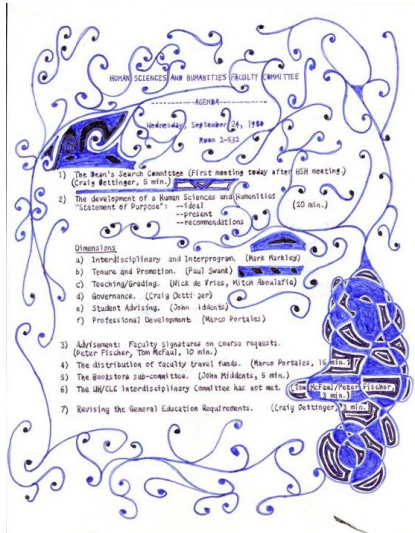 HUMAN SCIENCES AND HUMANITIES FACULTY COMMITTEE
AGENDA
Wednesday, September 24, 1980
Room 2-532
1) The Dean's Search Committee (First meeting today after HSH meeting.)
(Craig Oettinger, 5 min.)
2) The development of a Human Sciences and Humanities
"Statement of Purpose": --ideal (20 min.)
--present
--recommendations
Dimensions
a) Interdisciplinary and Interprogram. (Mark Markley)
b) Tenure and Promotion. (Paul Swank)
c) Teaching/Grading. (Nick de Vries, Mitch Aboulafia)
d) Governance. (Craig Oettinger)
e) Student Advising. (John Middents)
f) Professional Development. (Marco Portales)
3) Advisement: Faculty signatures on course requests.
(Peter Fischer, Tom McFaul, 10 min.)
4) The distribution of faculty travel funds. (Marco Portales, 15 min.)
5) The Bookstore sub-committee. (John Middents, 5 min.)
6) The UH/CLC interdisciplinary Committee has not met. (Tom McFaul/Peter Fischer,
3 min.)
7) Revising the General Education Requirements. (Craig Oettinger, 3 min.)